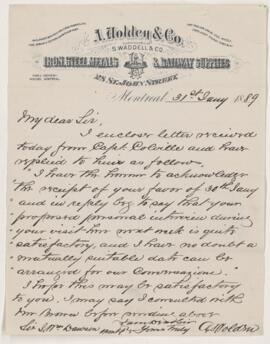 A. Holden & Co.
S. WADDELL & CO.
IRON, STEEL METALS & RAILWAY SUPPLIES
28 ST. JOHN STREET
Montreal, 31st Jany 1889
My dear Sir,
I enclose letter received
today from Capt. Colville and have
replied to him as follows.
I have the honor to acknowledge
the receipt of your favor of 30th Jany
and in reply beg to say that your
proposed personal interview during
your visit here next week is quite
satisfactory, and I have no doubt a
mutually suitable date can be
arranged for our Conversazione.
I hope this may be satisfactory
to you. I may say I consulted with
Mr
Sir J. Wm Dawson
Yours Truly
A. Holden